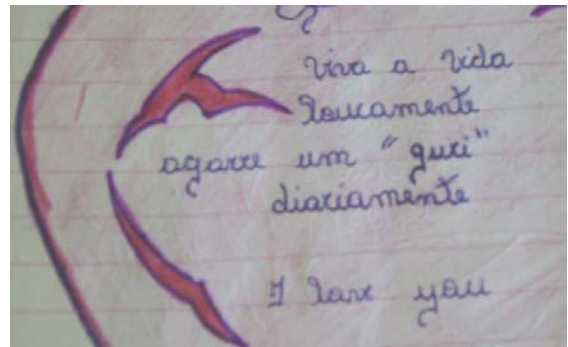 Viva a vida
loucamente
agarre um "guri"
diariamente
I love you